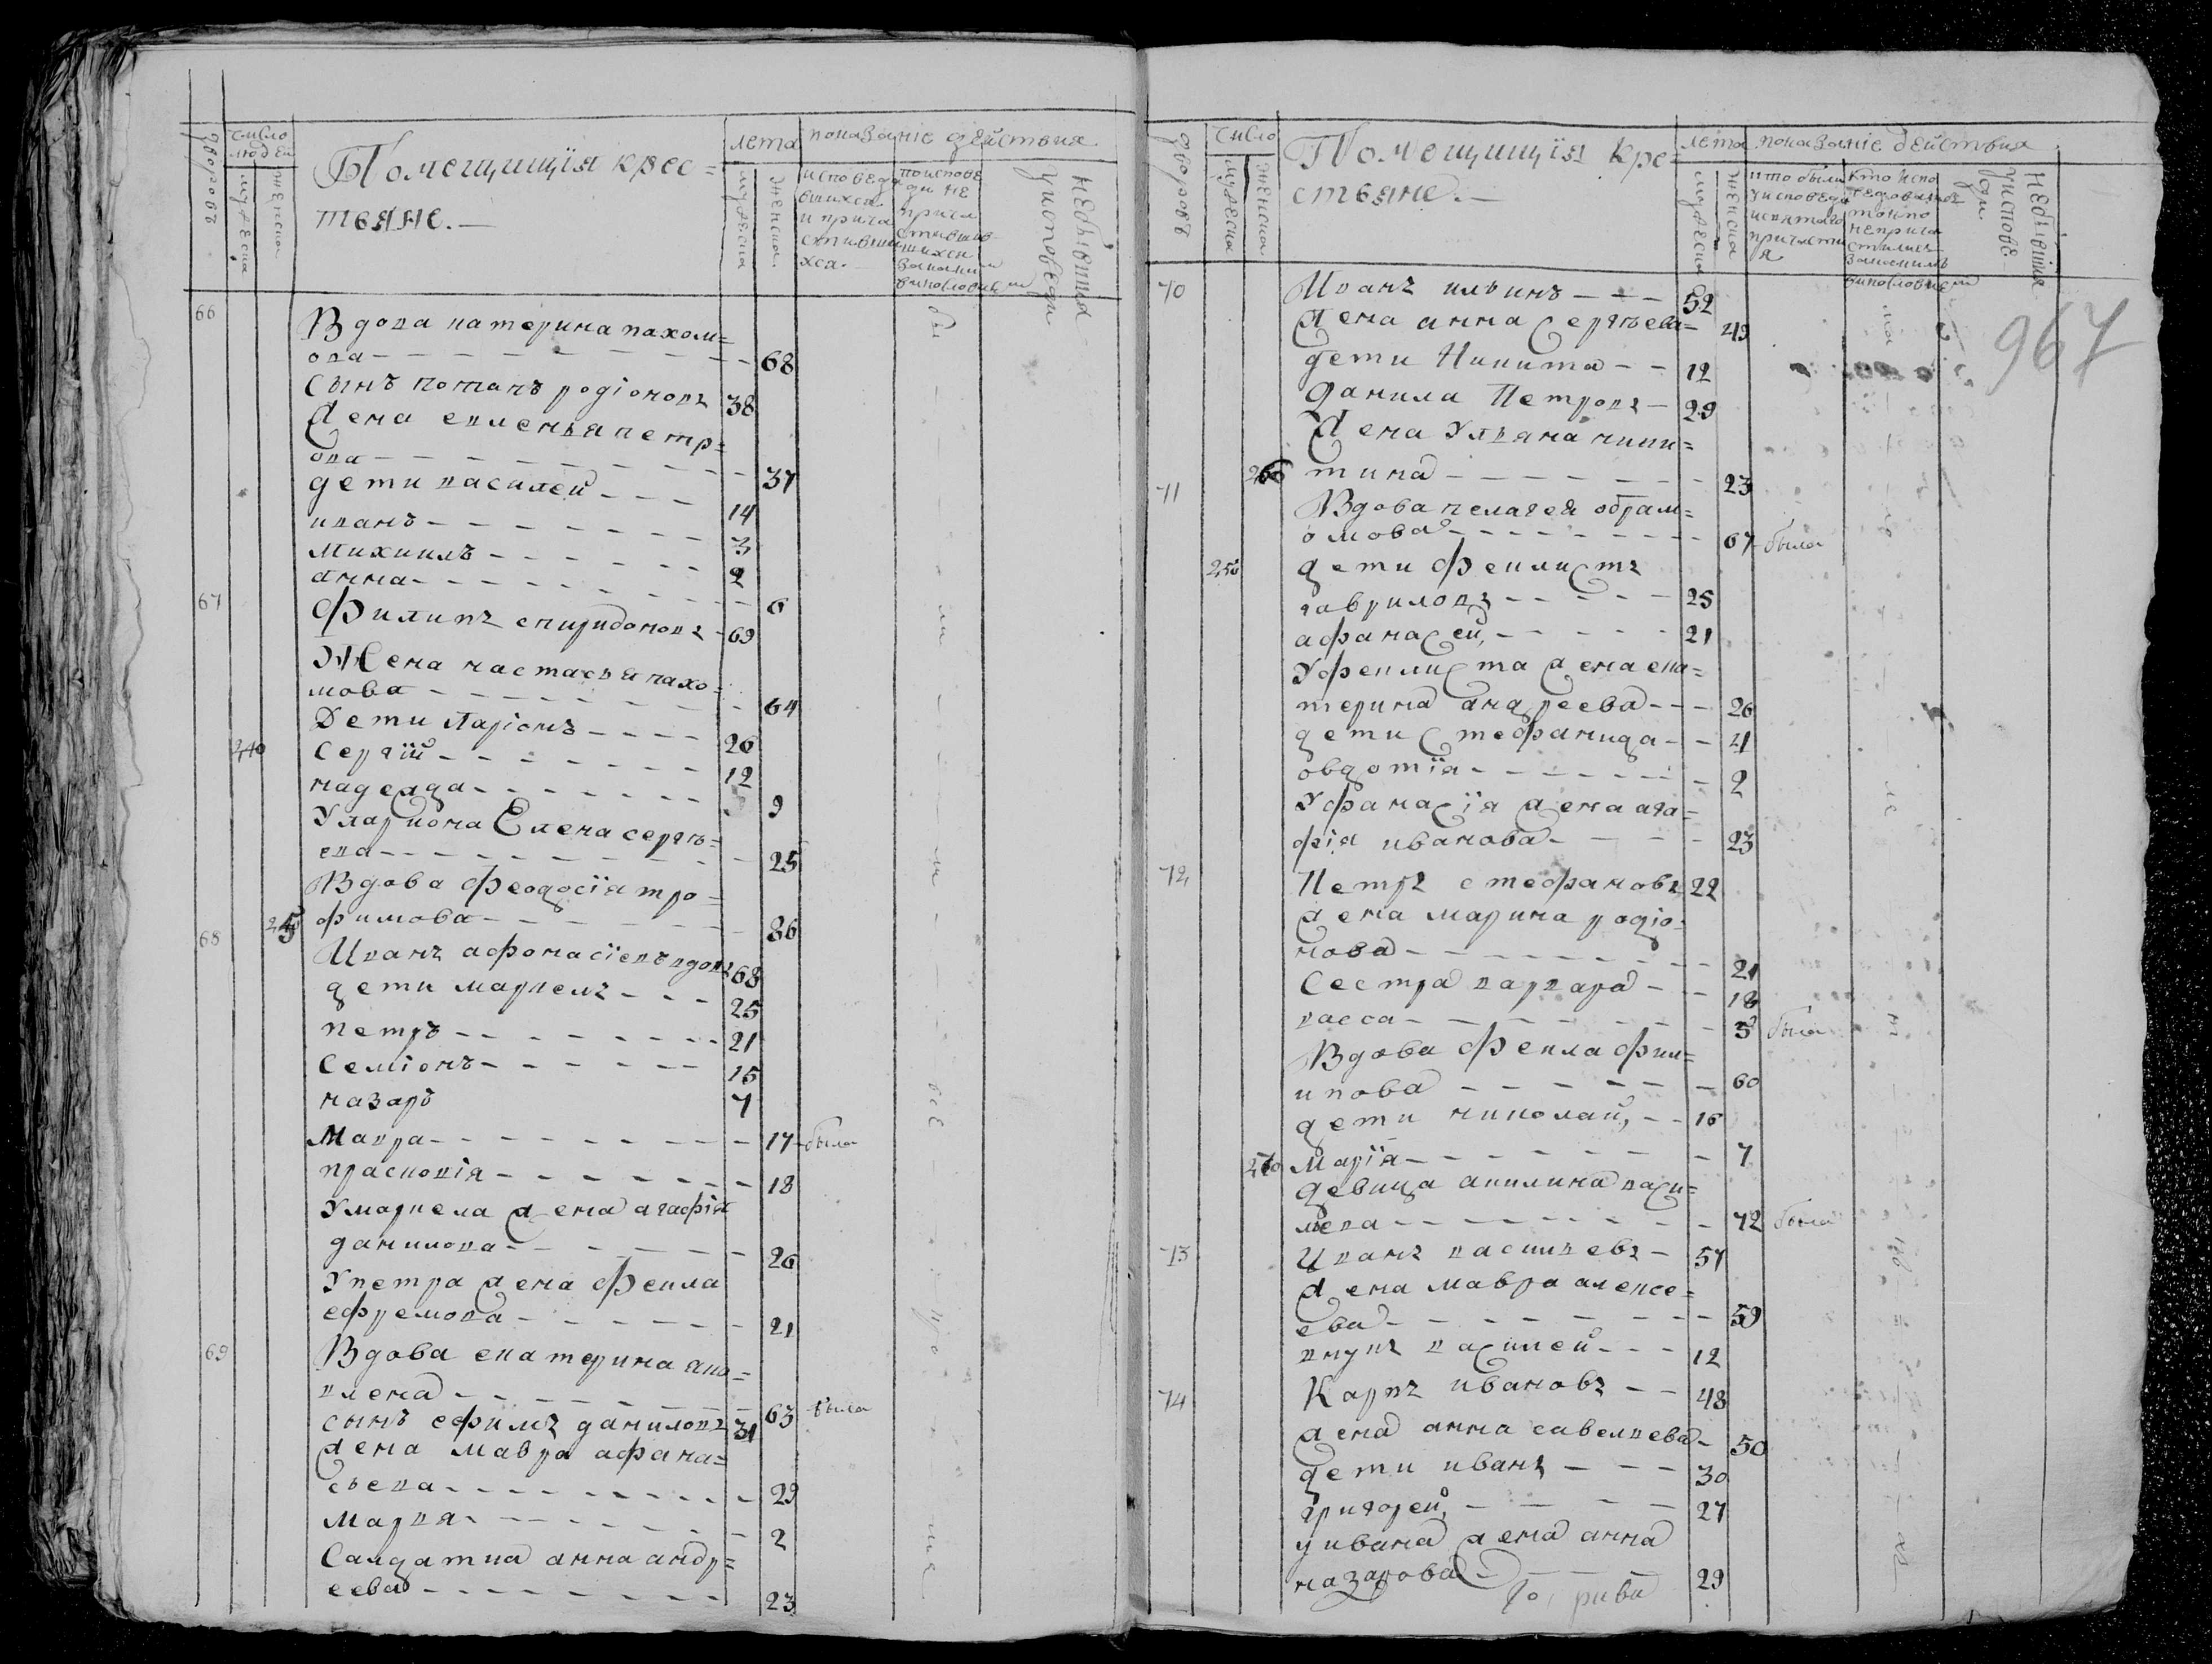 дворовъ
число
людей
мужеска
женска
Помещищїя крес=
тьяне.
лета
мужеска
женска
показаніе действия
исповеда
вшихся
и прича
стивши
хся.
поиспове
ди не
прича
стившив
шихся
небывшия
уисповеди
66
Вдова катерина пахом=
ова 68
Сынъ потапъ родіоновъ 38
Жена евленья петр=
ова 37
дети василей 14
иванъ 3
михаилъ 2
анна 6
67
Филипъ спиридоновъ 69
Жена настасья пахо=
мова 64
Дети Ларіонъ 26
240 Сергїй 12
надежда 9
Улариона Елена сергѣ=
ева 25
Вдова феодосїя тро=
фимова 86
68
Иванъ афонасїевъ вдовъ 68
дети маркелъ 25
петръ 21
Семіонъ 15
назаръ 7
Мавра 17 была
прасковія 18
Умаркела жена агафія
данилова 26
Упетра жена фекла
ефремова 21
69
Вдова екатерина яко=
влена 63 была
сынъ ефимъ даниловъ 31
жена мавра афана=
сьева 29
марья 2
Салдатка анна андр=
еева 23
дворовъ
число
мужеска
женска
Помещищїя кре=
стьяне.
лета
мужеска
женска
показаніе действия
кто были
уисповеди
исвятаго
причасти
я
кто испо
ведовался
токмо
неприча
стились
небывшия
уиспове
ди
967
70
Иванъ ильинъ 52
жена анна сергѣева 49
дети Никита 12
Данила Петровъ 29
Жена Ульяна ники=
тина 23
71
Вдова пелагея абрам=
омова 67 была
250 дети феклистъ
гавриловъ 25
афанасей 21
Уфеклиста жена ека=
терина андреева 26
дети стефанида 4
овдотїя 2
Уфанасїя жена ага=
фія иванова 23
72
Петръ стефановъ 22
жена марина родіо=
нова 21
Сестра варвара 18
васса 5 была
Вдова Фекла фил=
ипова 60
дети николай 16
270 марїя 7
девица акилина васи=
лева 72 была
73
Иванъ василевъ 57
жена мавра алексе=
ева 59
внукъ василей 12
74
Карпъ ивановъ 48
жена анна савельева 50
дети иванъ 30
григорей 27
уивана жена анна
назарова 29